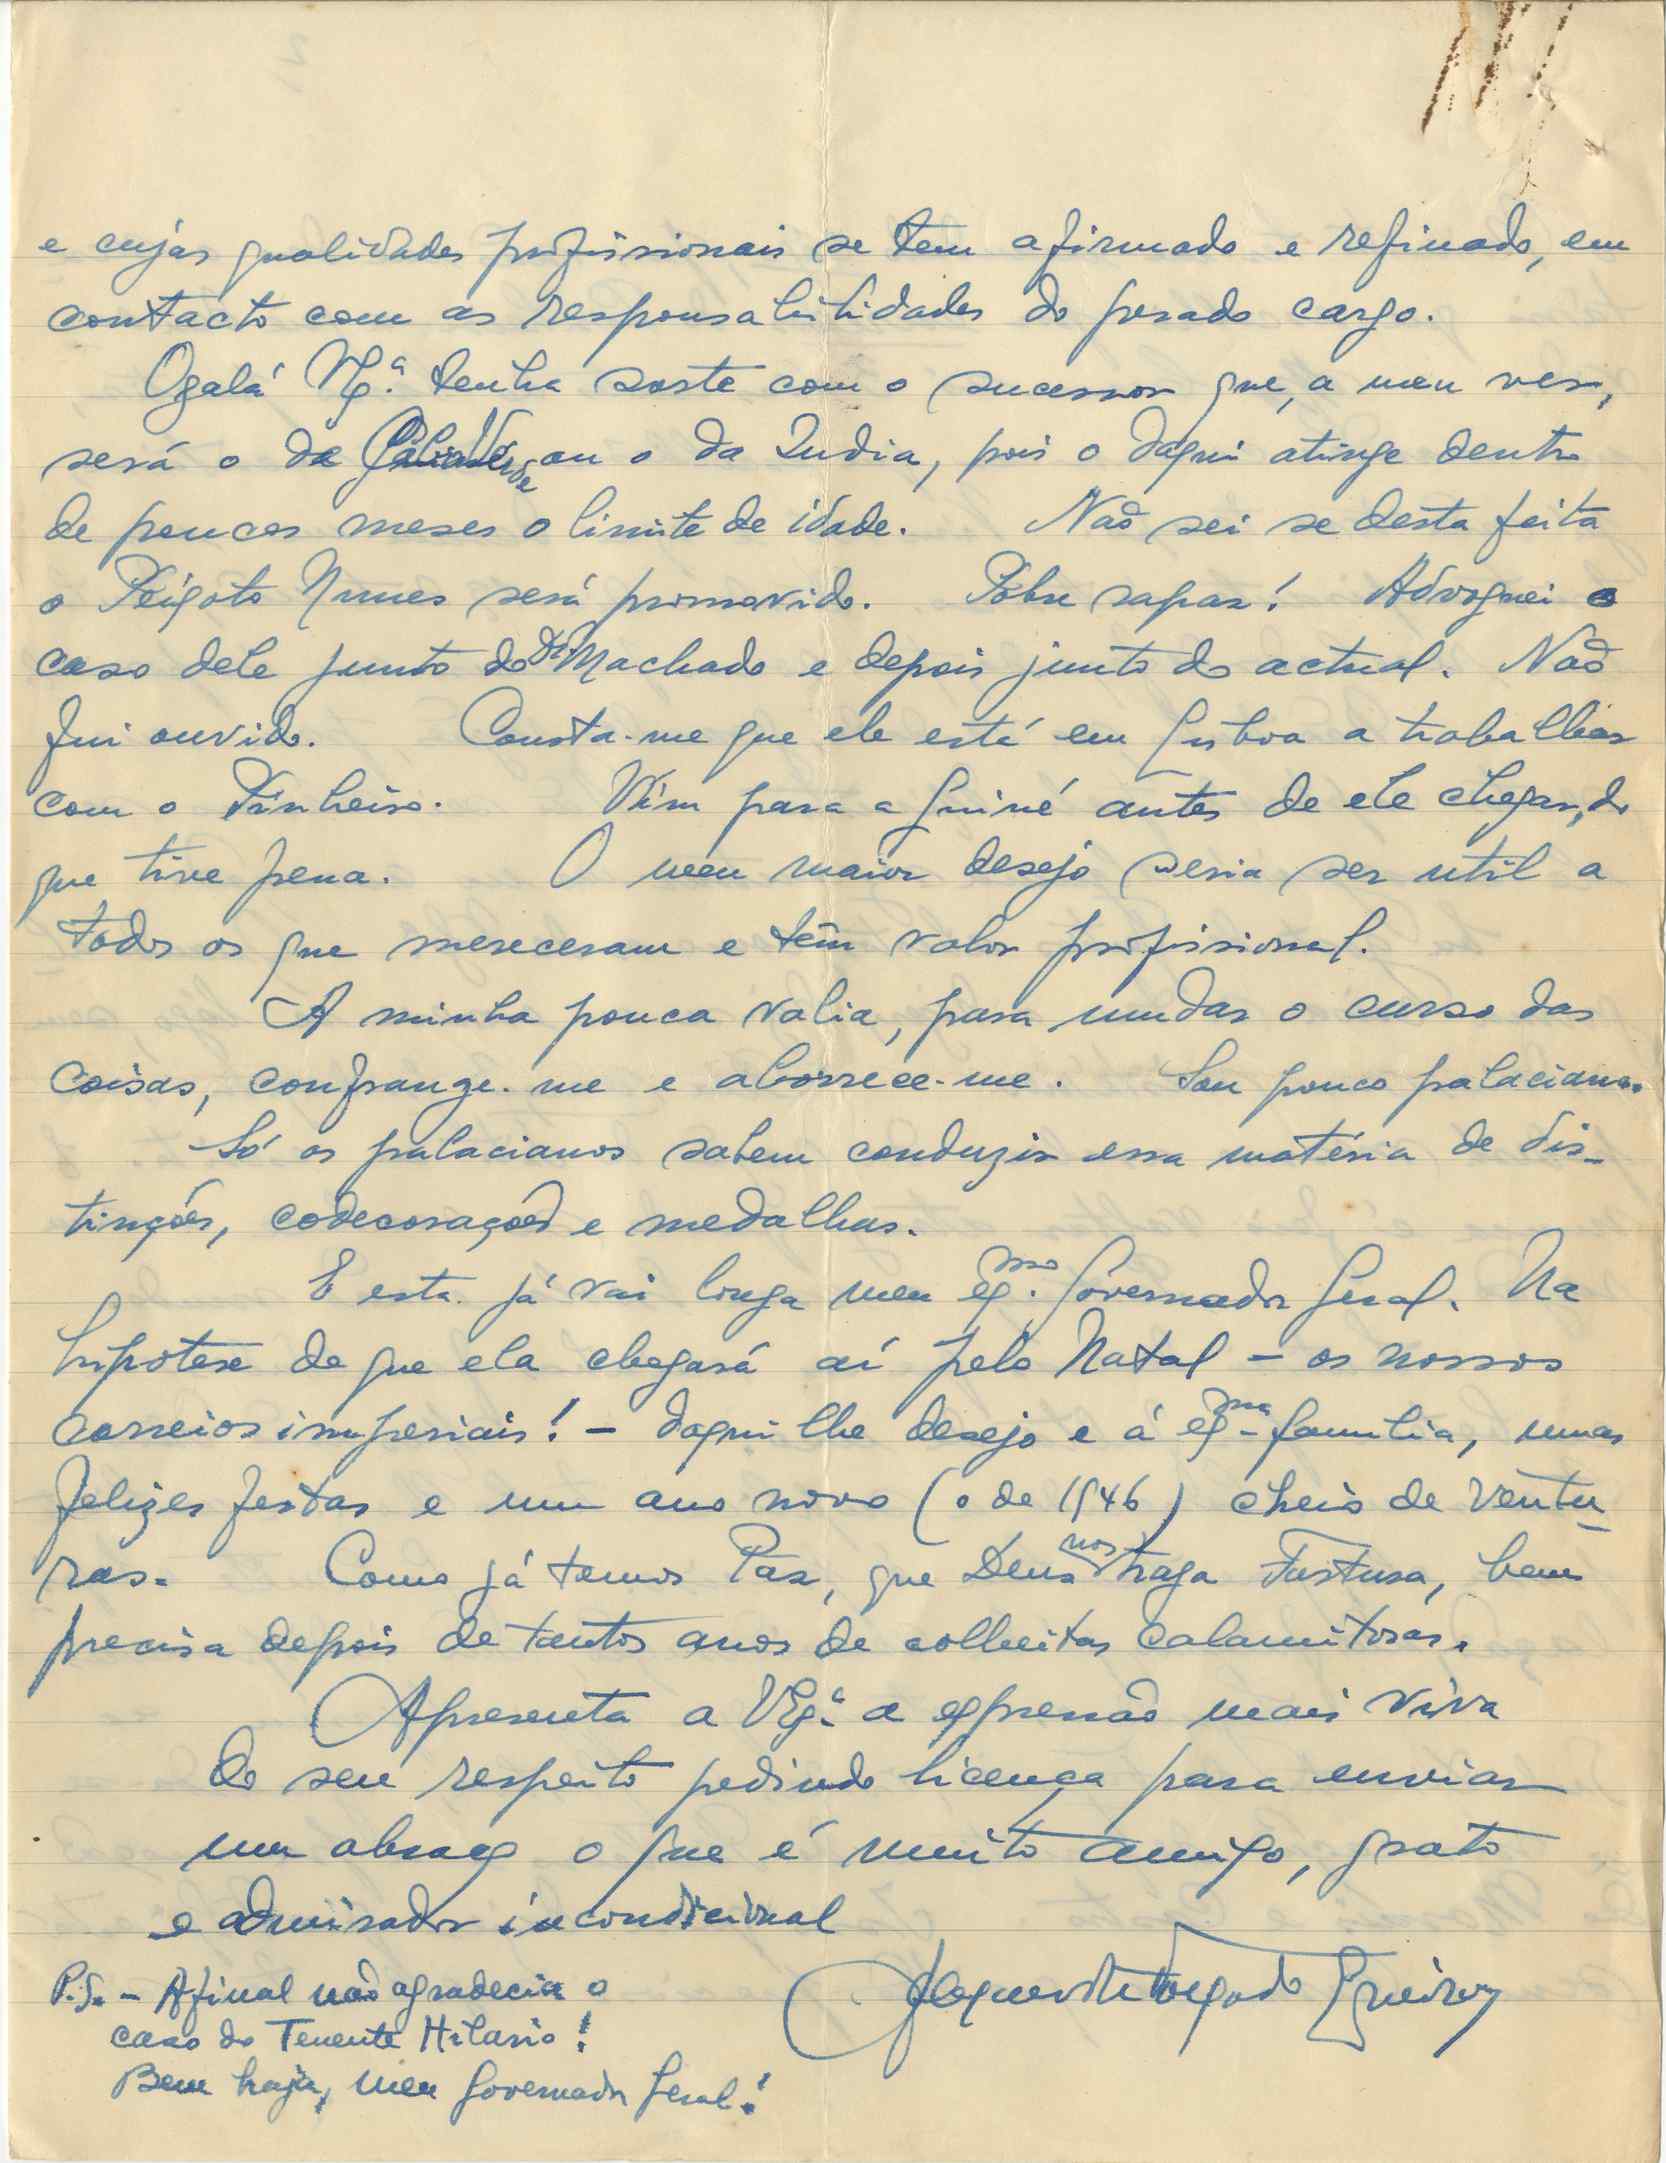 e cujas qualidades profissionais se tem afirmado e refinado, em
contacto com as responsabilidades do pesado cargo.
Oxalá V. Ex.ª tenha sorte com o sucessor que, a meu ver,
será o de Cabo Verde ou o da India, pois o daqui atinge dentro
de poucos meses o limite de idade. Não sei se desta feita
o Peixoto Nunes será promovido. Pobre rapaz! Advoguei o
caso dele junto do Dr. Machado e depois junto do actual. Não
fui ouvido. Consta-me que ele está em Lisboa a trabalhar
com o Pinheiro. Vim para a Guiné antes de ele chegar, do
que tive pena. O meu maior desejo seria ser util a
todos os que mereceram e têm valor profissional.
A minha pouca valia, para mudar o curso das
coisas, confrange-me e aborrece-me. Sou pouco palaciano.
Só os palacianos sabem conduzir essa matéria de dis-
tinções, codecorações e medalhas.
E esta já vai longa meu Ex.mo Governador Geral. Na
hipotese de que ela chegará aí pelo Natal - os nossos
correios imperiais! - daqui lhe desejo e á Ex.ma familia, umas
felizes festas e um ano novo (o de 1946) cheio de ventu-
ras. Como já temos Paz, que Deus nos traga Fartura, bem
precisa depois de tantos anos de colheitas calamitosas.
Apresenta a V. Ex.ª a expressão mais viva
do seu respeito pedindo licença para enviar
um abraço o que é muito amigo, grato
e admirador incondicional
P.S. - Afinal não agradecia o
caso do Tenente Hilario!
Bem haja, meu Governador Geral!